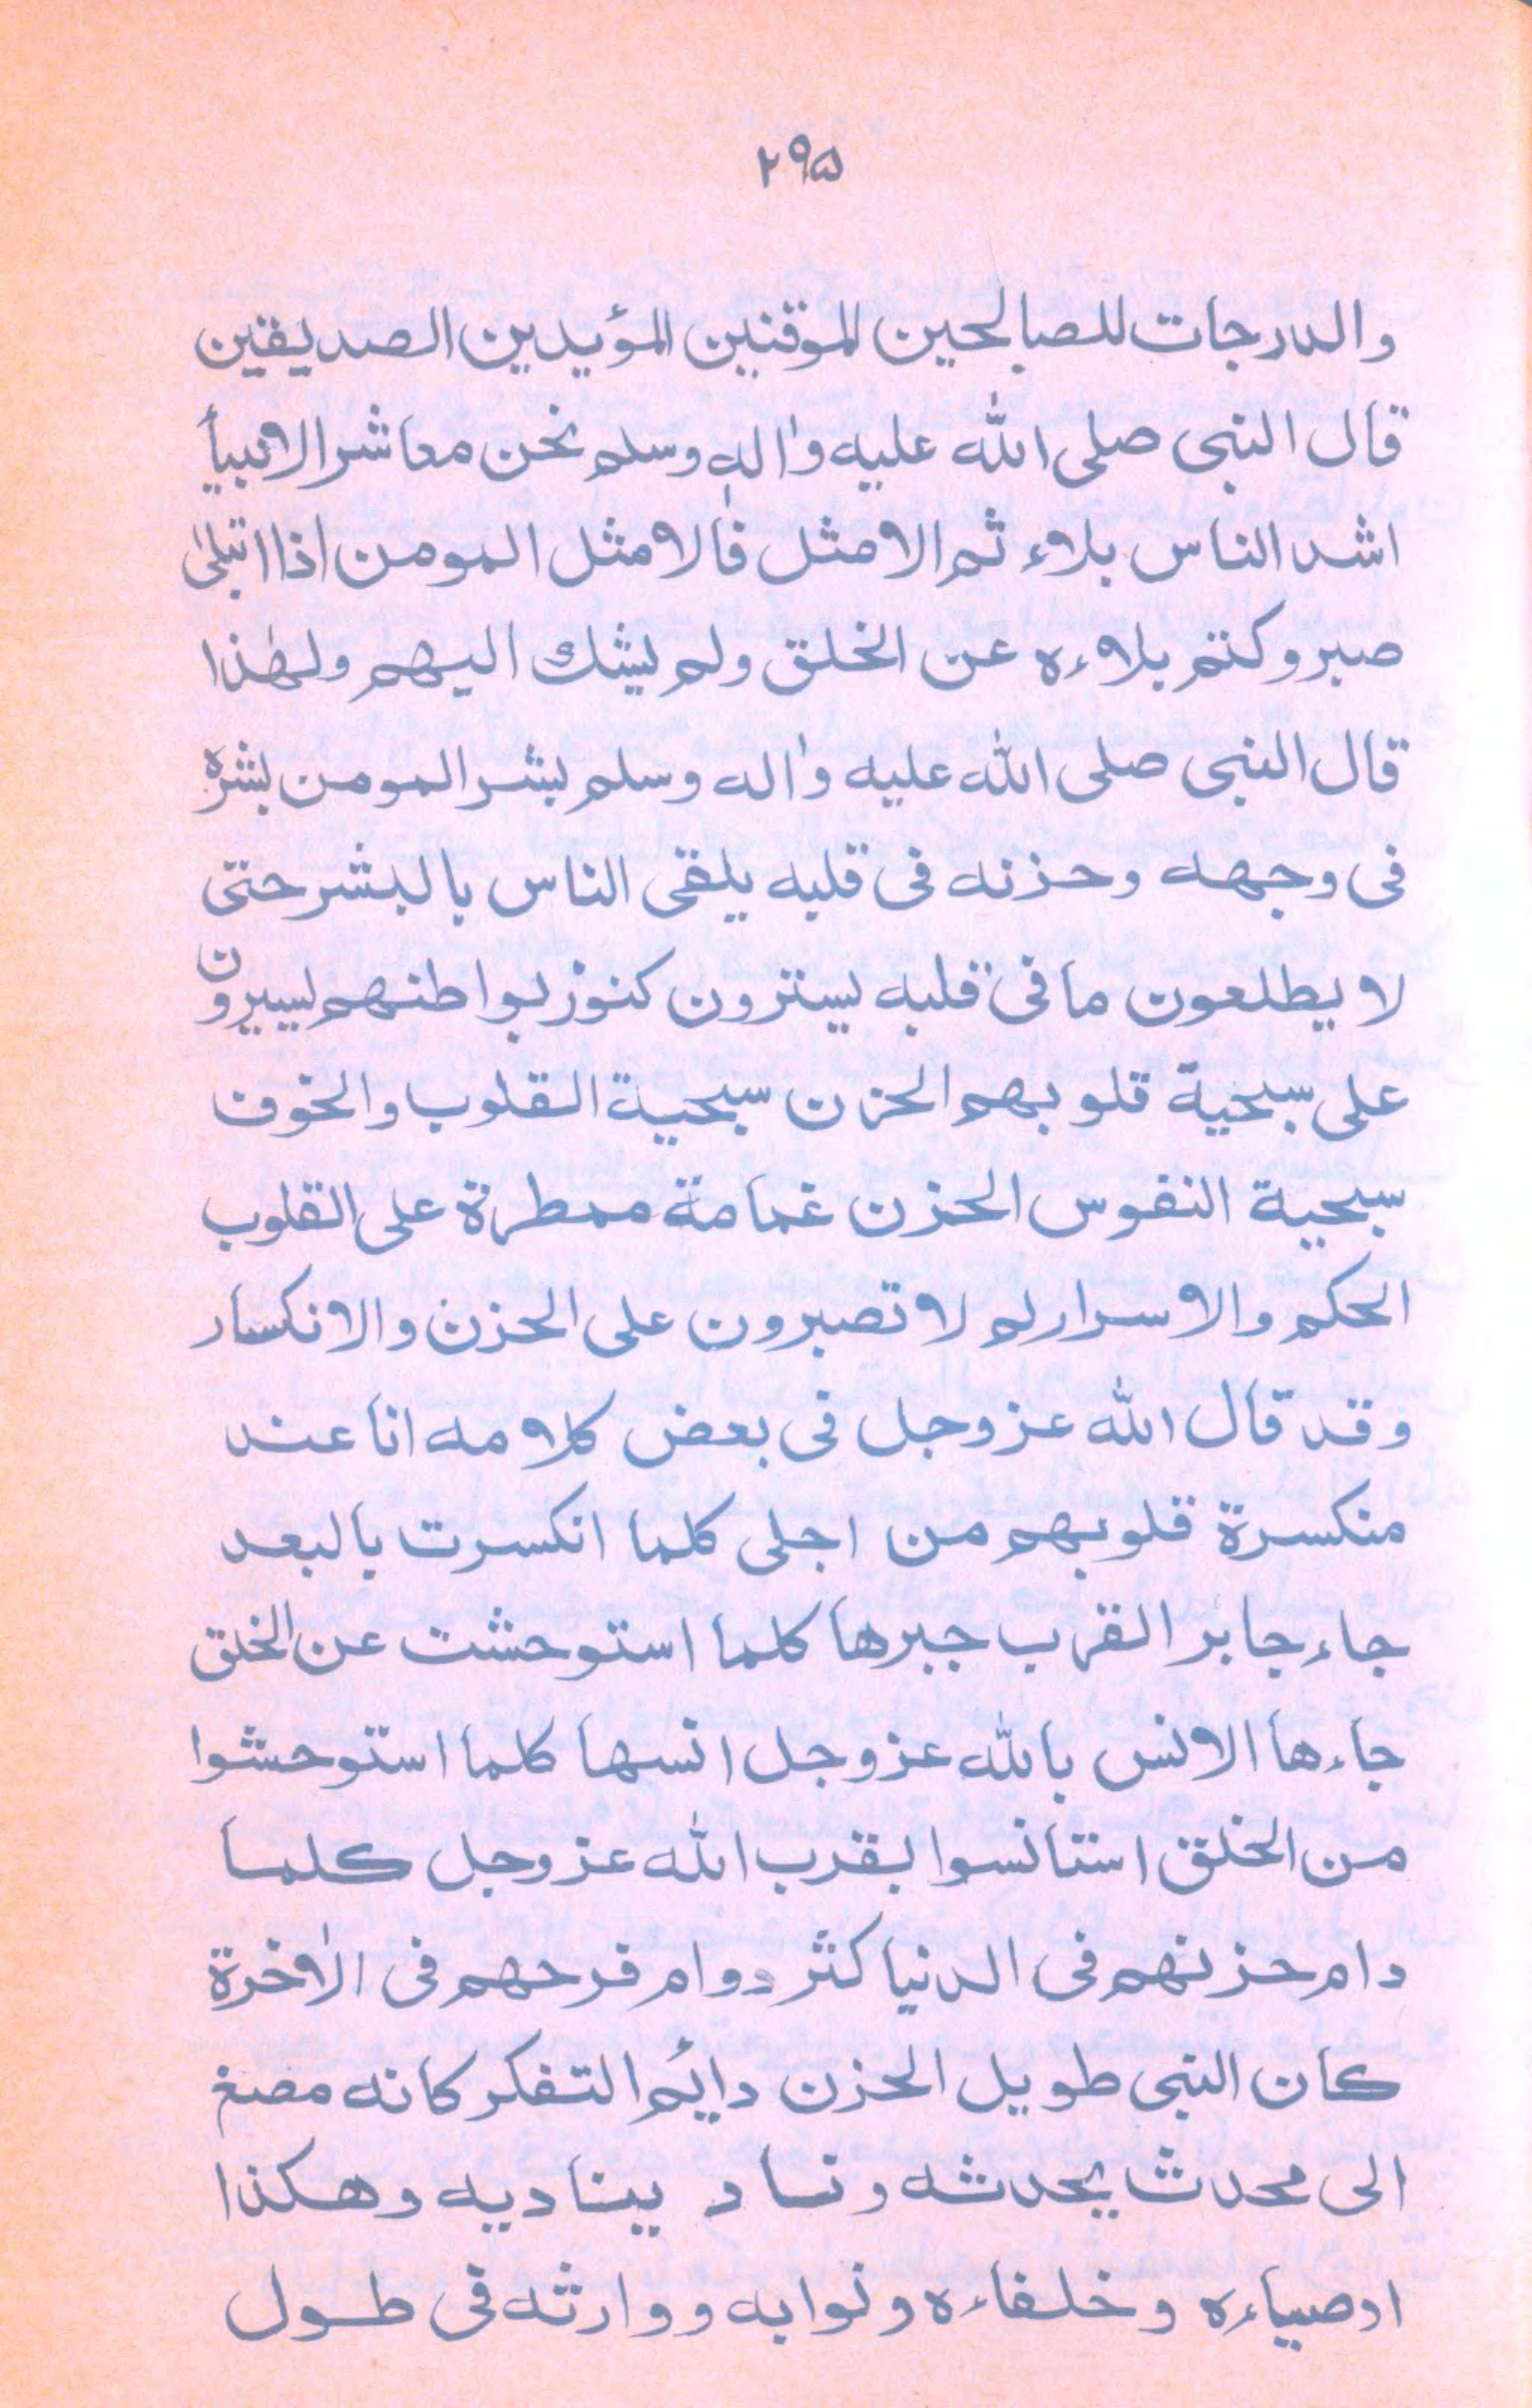 ۲۹۵
والدرجات للصالحين الموقنين المؤيدين الصديقين
قال النبى صلى الله عليه واٰله وسلم نحن معاشر الانبيأ
اشد الناس بلاء ثم الامثل فالامثل المومن اذا ابتلىٰ
صبر وكتم بلاءه عن الخلق ولم يشك اليهم ولهٰذا
قال النبى صلى الله عليه واٰله وسلم بشر المومن بشره
فى وجهه وحزنه فى قلبه يلقى الناس بالبشر حتى
لا يطلعون ما فى قلبه يسترون كنوز بواطنهم يسيرون
على سبحية قلوبهم الحزن سبحية القلوب والخوف
سبحية النفوس الحزن غمامة ممطرة على القلوب
الحكم والاسرار لم لا تصبرون على الحزن والانكسار
وقد قال الله عز وجل فى بعض كلامه انا عند
منكسرة قلوبهم من اجلى كلما انكسرت بالبعد
جاء جابر القرب جبرها كلما استوحشت عن الخلق
جاءها الانس بالله عز وجل انسها كلما استوحشوا
من الخلق استانسوا بقرب الله عز وجل كلما
دام حزنهم فى الدنيا كثر دوام فرحهم فى الاٰخرة
كان النبى طويل الحزن دائم التفكر كانه مصغ
الى محدث يحدثه وناد يناديه وهكذا
اوصياءه وخلفاءه ونوابه ووارثه فى طول